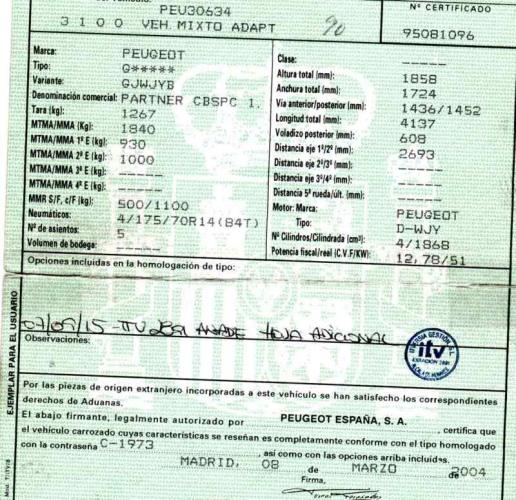 PEU30634
Nº CERTIFICADO
3 1 0 0 VEH. MIXTO ADAPT
90
95081096
Marca: PEUGEOT
Tipo: G*****
Variante: GJWJYB
Denominación comercial: PARTNER CBSPC 1.
Tara (kg): 1267
MTMA/MMA (Kg): 1840
MTMA/MMA 1º E (kg): 930
MTMA/MMA 2º E (kg): 1000
MTMA/MMA 3º E (kg): -----
MTMA/MMA 4º E (kg): -----
MMR S/F, c/F (kg): 500/1100
Neumáticos: 4/175/70R14(84T)
Nº de asientos: 5
Volumen de bodega: -----
Clase: -----
Altura total (mm): 1858
Anchura total (mm): 1724
Vía anterior/posterior (mm): 1436/1452
Longitud total (mm): 4137
Voladizo posterior (mm): 608
Distancia eje 1º/2º (mm): 2693
Distancia eje 2º/3º (mm): -----
Distancia eje 3º/4º (mm): -----
Distancia 5ª rueda/últ. (mm): -----
Motor: Marca: PEUGEOT
Tipo: D-WJY
Nº Cilindros/Cilindrada (cm³): 4/1868
Potencia fiscal/real (C.V.F/KW): 12,78/51
Opciones incluidas en la homologación de tipo:
EJEMPLAR PARA EL USUARIO
07/09/15 - ITV 2891 AÑADE HOJA ADICIONAL
Observaciones:
itv
Por las piezas de origen extranjero incorporadas a este vehículo se han satisfecho los correspondientes
derechos de Aduanas.
El abajo firmante, legalmente autorizado por PEUGEOT ESPAÑA, S. A. , certifica que
el vehículo carrozado cuyas características se reseñan es completamente conforme con el tipo homologado
con la contraseña C-1973 , así como con las opciones arriba incluidas.
MADRID, 08 de MARZO de 2004
Firma,